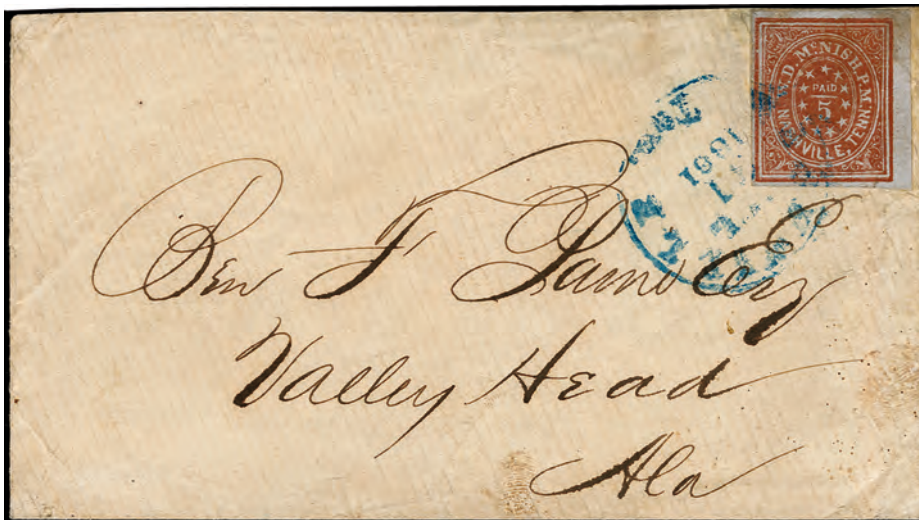 W.D. McNISH P.M.
PAID
5
NASHVILLE, TENN.
1861
Ben F
Esq
Valley Head
Ala